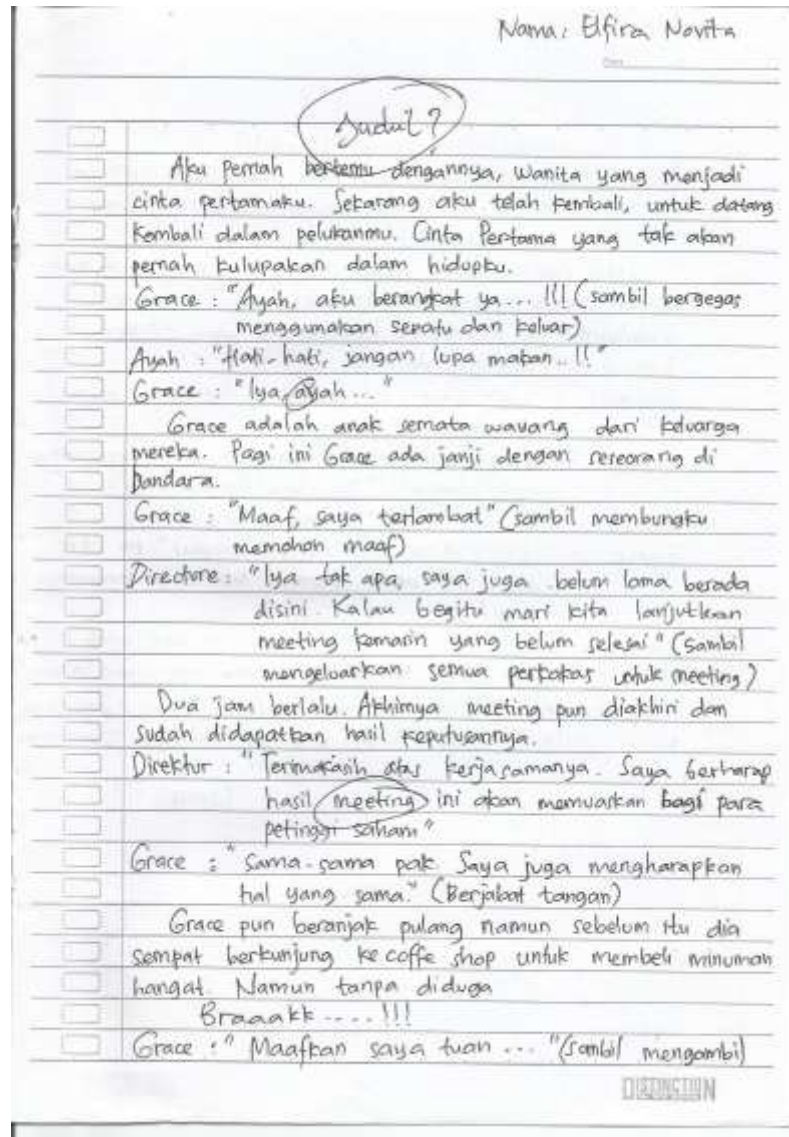 Nama: Elfira Novita
Judul?
Aku pernah bertemu dengannya, wanita yang menjadi
cinta pertamaku. Sekarang aku telah kembali, untuk datang
kembali dalam pelukanmu. Cinta Pertama yang tak akan
pernah kulupakan dalam hidupku.
Grace : "Ayah, aku berangkat ya... !!! (sambil bergegas
menggunakan sepatu dan keluar)
Ayah : "Hati-hati, jangan lupa makan..!!"
Grace : "Iya, ayah..."
Grace adalah anak semata wayang dari keluarga
mereka. Pagi ini Grace ada janji dengan seseorang di
bandara.
Grace : "Maaf, saya terlambat" (sambil membungku
memohon maaf)
Directore : "Iya tak apa, saya juga belum lama berada
disini. Kalau begitu mari kita lanjutkan
meeting kemarin yang belum selesai" (sambil
mengeluarkan semua perkakas untuk meeting)
Dua jam berlalu. Akhirnya meeting pun diakhiri dan
sudah didapatkan hasil keputusannya.
Direktur : "Terimakasih atas kerjasamanya. Saya berharap
hasil meeting ini akan memuaskan bagi para
petinggi saham"
Grace : "Sama-sama pak. Saya juga mengharapkan
hal yang sama." (Berjabat tangan)
Grace pun beranjak pulang namun sebelum itu dia
sempat berkunjung ke coffe shop untuk membeli minuman
hangat. Namun tanpa diduga
Braaakk ....!!!
Grace : "Maafkan saya tuan ..." (sambil mengambi)